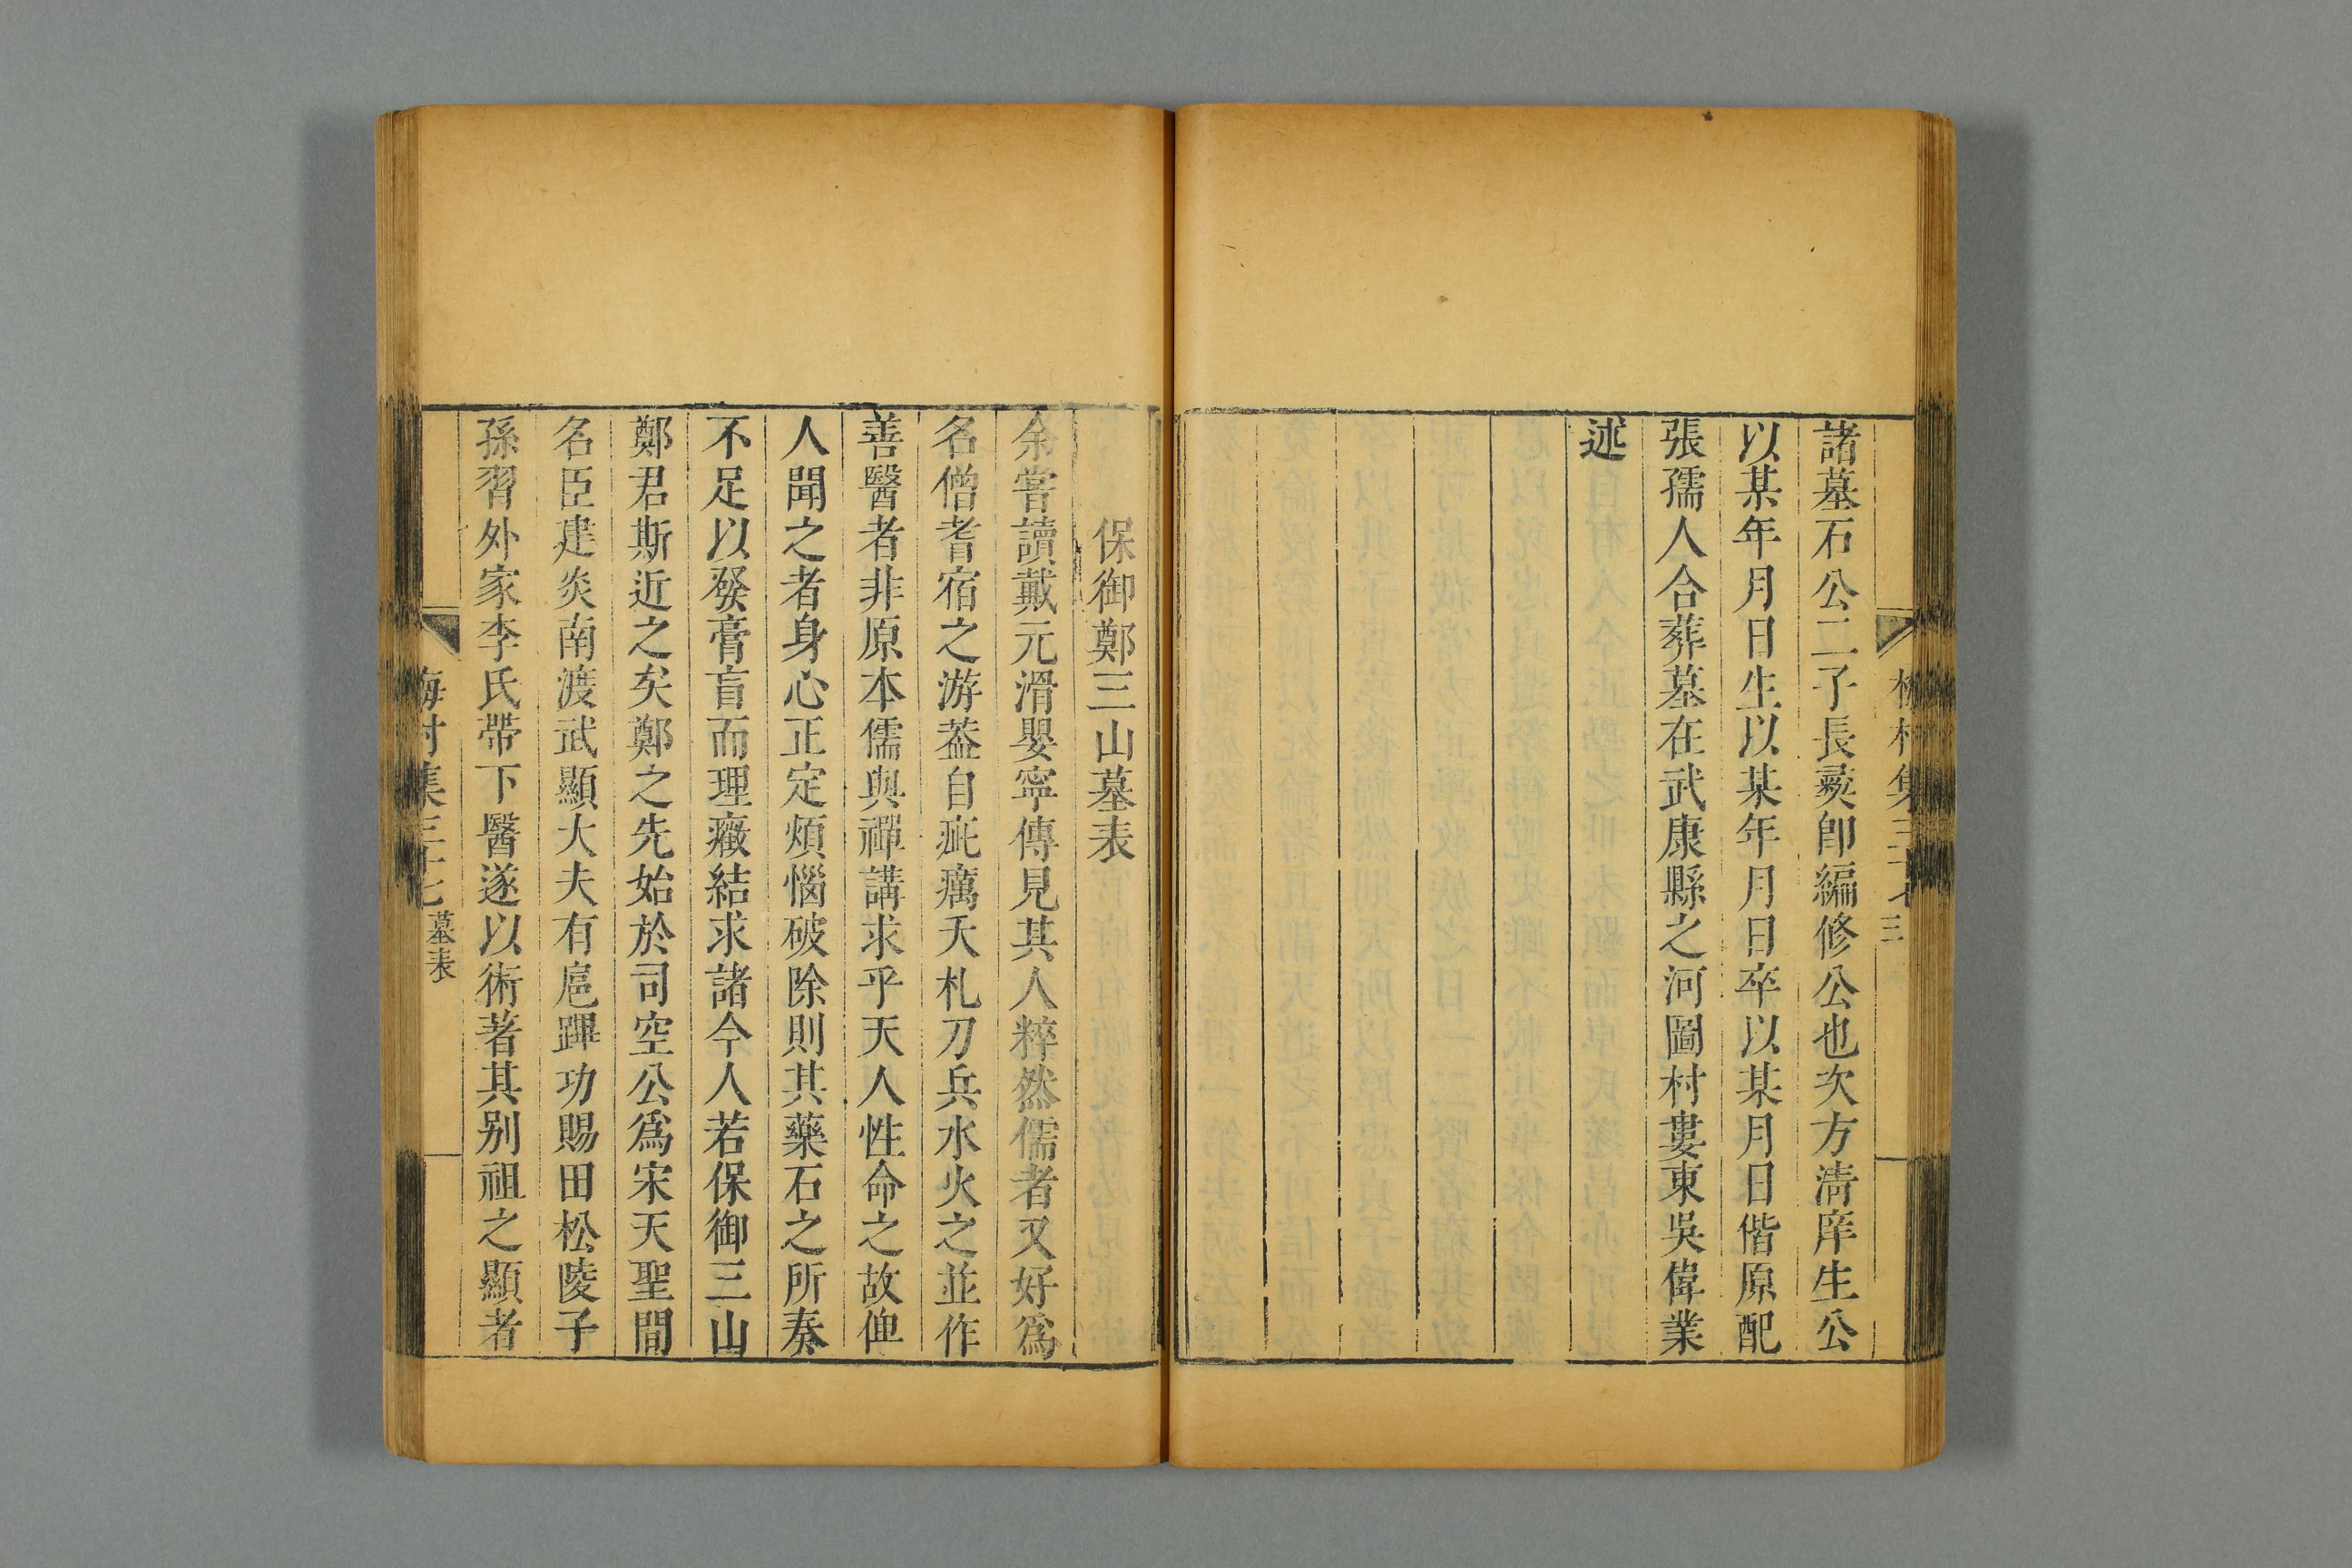 梅村集三十七 三
諸墓石公二子長彨卽編修公也次方淸庠生公
以某年月日生以某年月日卒以某月日偕原配
張孺人合葬墓在武康縣之河圖村婁東吳偉業
述
保御鄭三山墓表
余嘗讀戴元滑嬰寜傳見其人粹然儒者又好爲
名僧耆宿之游葢自疵癘夭札刀兵水火之並作
善醫者非原本儒與禪講求乎天人性命之故俾
人聞之者身心正定煩惱破除則其藥石之所奏
不足以發膏肓而理癥結求諸今人若保御三山
鄭君斯近之矣鄭之先始於司空公爲宋天聖間
名臣建炎南渡武顯大夫有扈蹕功賜田松陵子
孫習外家李氏帶下醫遂以術著其别祖之顯者
梅村集三十七 墓表